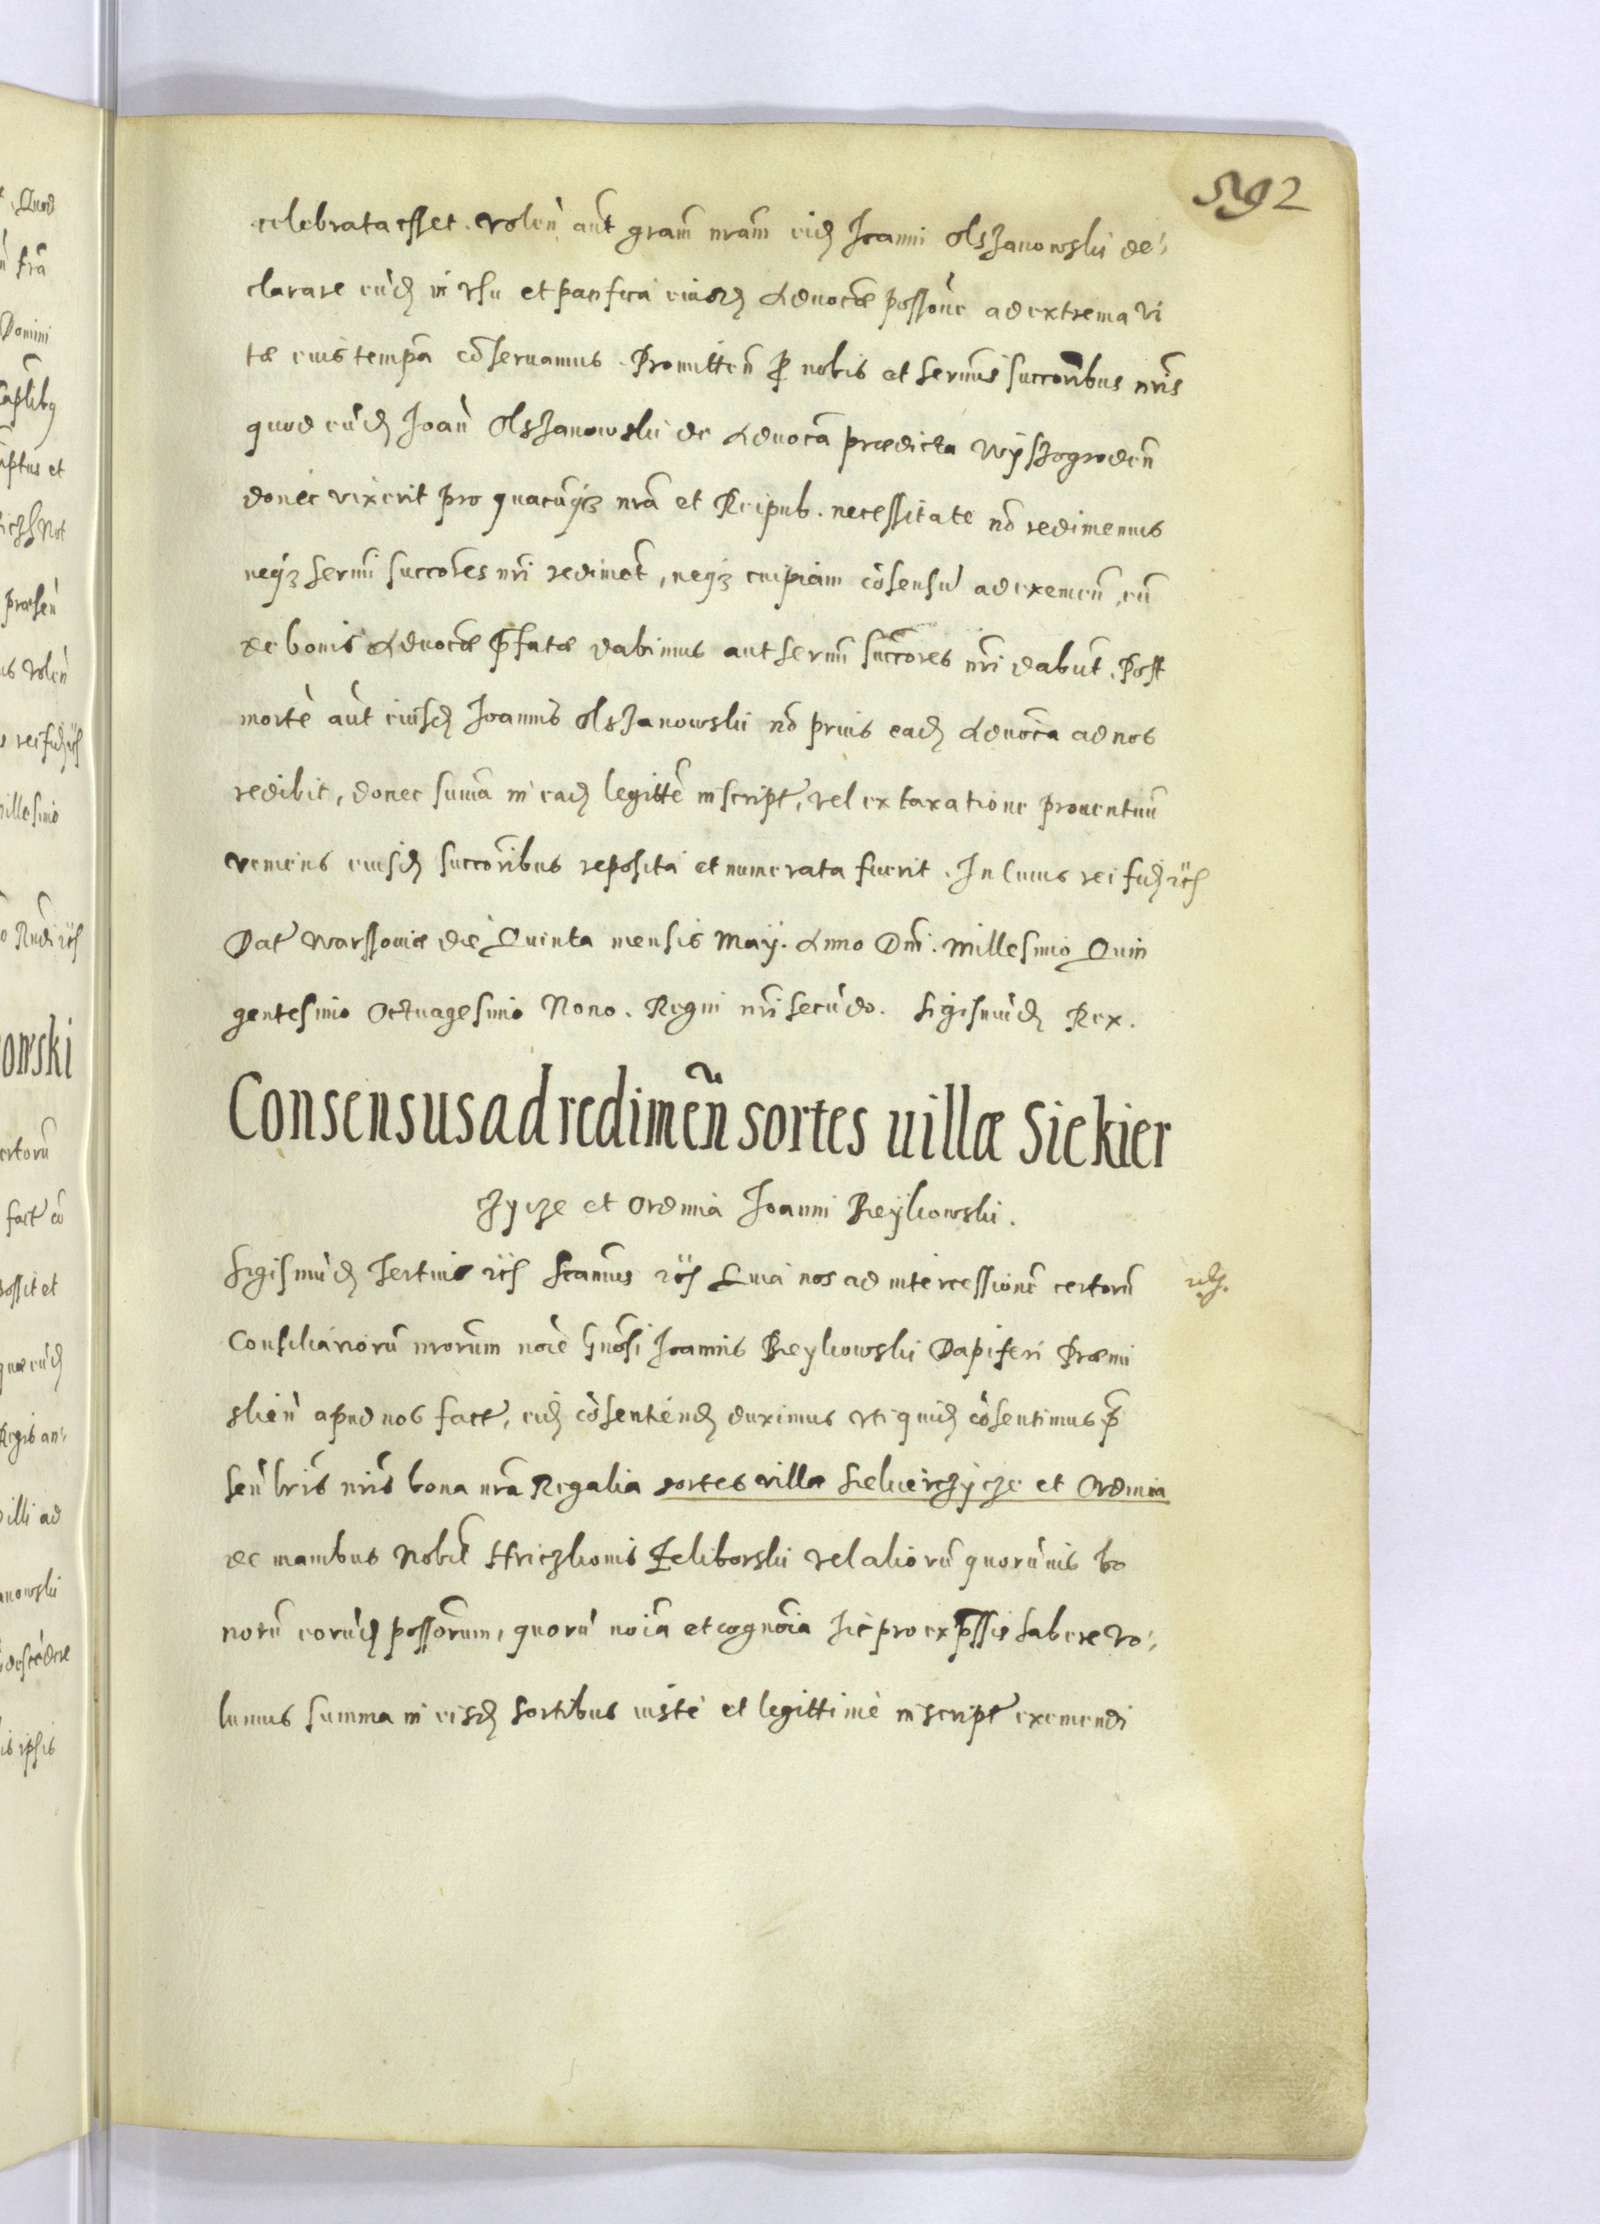 592
celebrata esset. Volen̄ aūt gram̄ nram̄ eid̄ Joanni Olszanowski de-
clarare eūd̄ in vsu et pacifica eiusd̄ Aduocāe possōne ad extrema vi
tæ eius tempā cōseruamus. Promitten̄ ꝓ nobis et sermīs succorībus nrīs
quod eūd̄ Joan̄ Olszanowski de Aduocā prædicta Wyszogroden̄
donec vixerit pro quacūq3 nrā et Reipub. necessitate nō redimemus
neq3 sermī succorēs nrī rediment, neq3 cuipiam cōsensū ad eximen̄ eū
de bonis Aduocāe p̄fatæ dabimus aut sermī succorēs nrī dabūt. Post
mortē aūt eiusd̄ Joannis Olszanowski nō prius ead̄ Aduocīa ad nos
redibit, donec sum̄a in ead̄ legittē inscript, vel ex taxatione prouentuū
veniens eiusd̄ succorībus reposita et numerata fuerit. In cuius rei fid̄ rc̄
Dat Warssouiæ die Quinta mensis Maij. Anno Dnī. Millesimo Quin
gentesimo Octuagesimo Nono. Regni nrī secūdo. Sigismūd̄ Rex.
Consensus ad redimen̄ sortes uillæ Siekier
zycze et Ordinia Joanni Reykowski.
Sigismūd̄ Tertius rc̄ Scamūs rc̄ Quia nos ad intercessionē certorū
Consiliariorū nrorum noīe Gnosī Joannis Reykowski Dapiferi Præmi
slien̄ apud nos fact, eid̄ cōsentiend̄ duximus vti quid̄ cōsentimus p̄
sēn lrīs nrīs bona nrā Regalia sortes villæ Siekierzycze et Ordinia
de manibus Nobil̄ Hriczkonis Zeliborski vel aliorū quorūuis bo
norū eorūd̄ possorum, quorū noīa et cognoīa hic pro expssis habere vo-
lumus summa in eisd̄ sortibus iustè et legittimè inscript eximendi